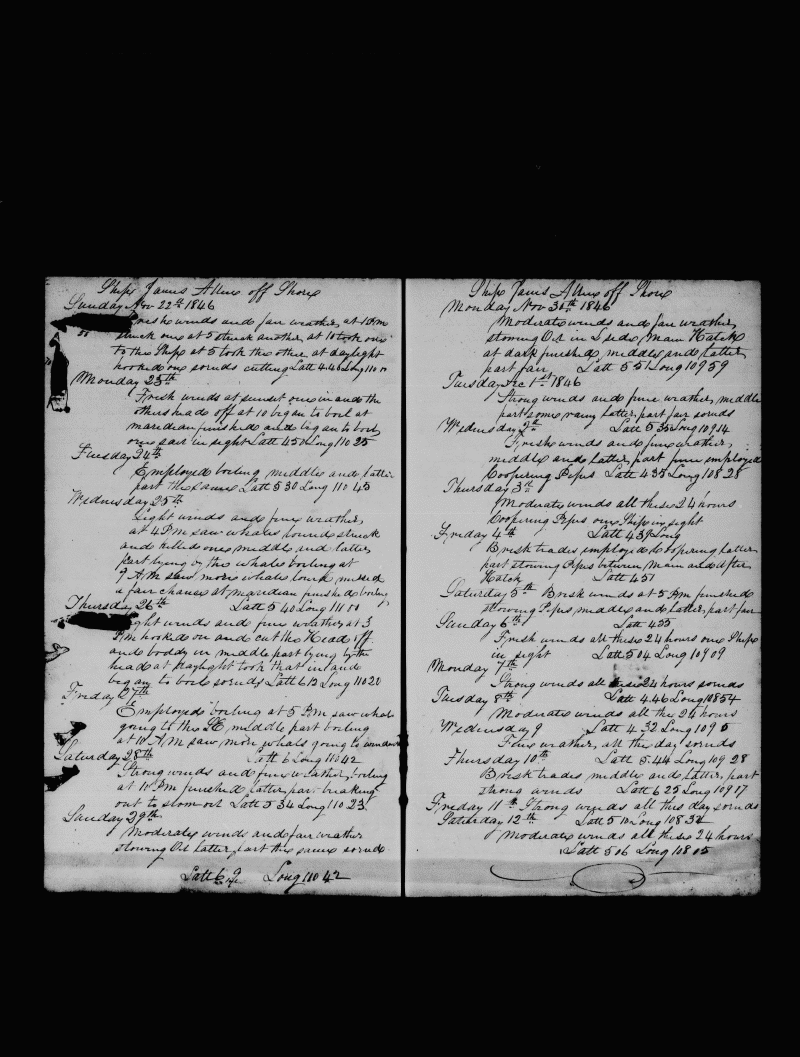 Ship James Allen off Shore
Sunday Nov 22th 1846
Fresh winds and fair weather, at 1 PM
struck one at 5 struck another, at 10 took one
to the Ship at 5 took the other at daylight
hooked one so ends cutting Latt 4.46 Long 110
Monday 23th
Fresh winds at sunset one in and the
others head off at 10 began to boil at
maridian finished and began to boil
one sail in sight Latt 450 Long 110 25
Tuesday 24th
Employed boiling middle and latter
part the same Latt 5 30 Long 110 45
Wednesday 25th
Light winds and fine weather,
at 4 PM saw whales lowered struck
and killed one middle and latter
part lying by the whale boiling at
9 A.M saw more whales lowerd missed
a fair chance at maridian finished boiling
Thursday 26th Latt 5 40 Long 111
ght winds and fine weather at 3
PM hooked on and cut the Head off
and boddy in middle part lying by the
head at daylight took that in and
began to boil so ends Latt 6 13 Long 110 20
Friday 27th
Employed boiling at 5 PM saw whale
going to the SE middle part boiling
at 10 A M saw more whals going to windward
Saturday 28th Latt 6 Long 110 42
Strong winds and fine weather, boiling
at 10 PM finished latter part breaking
out to stow oil Latt 5 34 Long 110 23
Sunday 29th
Moderate winds and fair weather
stowing Oil latter part the same so ends
Latt 6 Long 110 42
Ship James Allen off Shore
Monday Nov 30th 1846
Moderate winds and fair weather,
stowing Oil in Main Hatch
at dark finished, middle and latter
part fair Latt 5 51 Long 109 59
Tuesday Dec 1st 1846
Strong winds and fine weather, middle
part some rainy latter part fair so ends
Wednesday 2th Latt 5 35 Long 109 14
Fresh winds and fine weather,
middle and latter part fine employed
Coopering Pipes Latt 435 Long 108 28
Thursday 3th
Moderate winds all these 24 hours
Coopering Pipes one Ship in sight
Friday 4th Latt 439 Long
Brisk trades employed Coopering latter
part stowing Pipes between Main and After
Hatch Latt 451
Saturday 5th Brisk winds at 5 PM finished
stowing Pipes middle and latter, part fair
Sunday 6th Latt 455
Fresh winds all these 24 hours one Ship
in sight Latt 5 04 Long 109 09
Monday 7th
Strong winds all these 24 hours so ends
Tuesday 8th Latt 4.46 Long 108 54
Moderate winds all the 24 hours
Wednesday 9 Latt 4 32 Long 109 5
Fine weather, all the day so ends
Thursday 10th Latt 5.44 Long 109 28
Brisk trades middle and latter, part
strong winds Latt 6 25 Long 109 17
Friday 11th Strong winds all this day so ends
Saturday 12th Latt 5 10 Long 108 32
Moderate winds all these 24 hours
Latt 506 Long 108 05